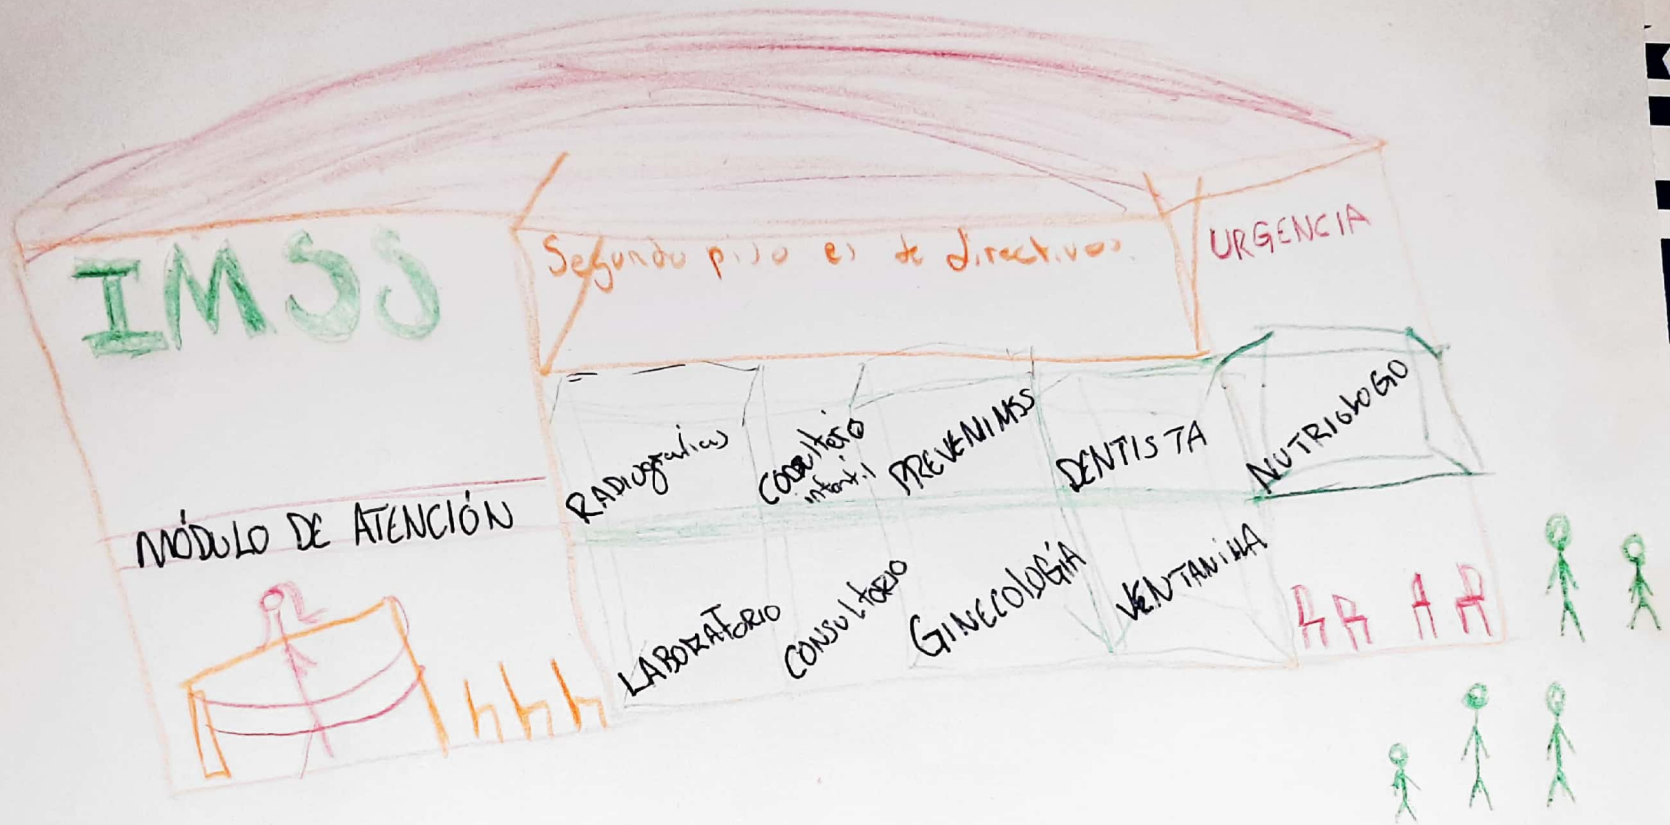 IMSS
Segundo piso es de directivos.
URGENCIA
MÓDULO DE ATENCIÓN
RADIOgrafias
CONSUltoriO
infantil
PREVENIMSS
DENTISTA
NUTRIOLOGO
LABORATORIO
CONSUltORIO
GINECOlOGÍA
VENTANillA